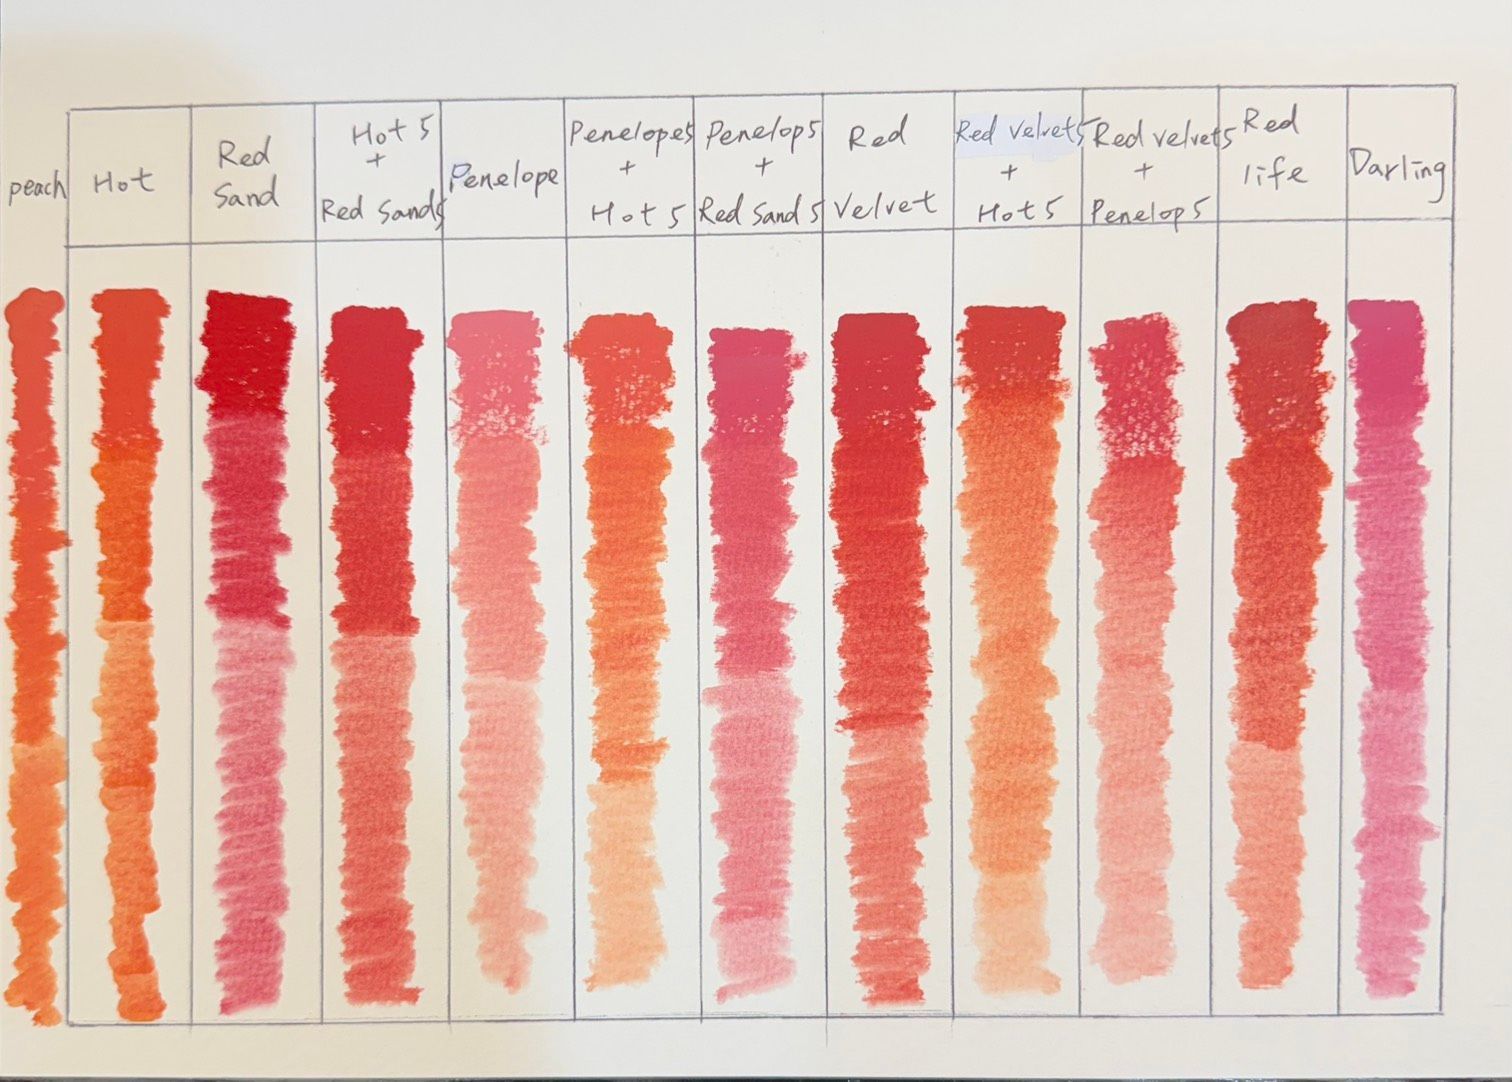 peach
Hot
Red
Sand
Hot 5
+
Red Sand5
Penelope
Penelope5
+
Hot 5
Penelop5
+
Red Sand 5
Red
Velvet
Red Velvet5
+
Hot 5
Red velvet5
+
Penelop5
Red
life
Darling